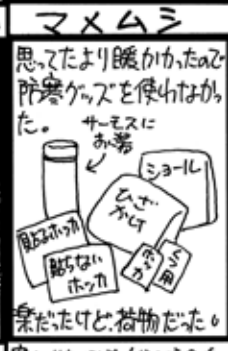 マメムシ
思ってたより暖かかったので
防寒グッズを使わなかっ
た。
サーモスに
お茶
ショール
ひざ
かけ
貼るホッカ
貼らない
ホッカ
ホッカ
くつ用
楽だったけど、荷物だった。